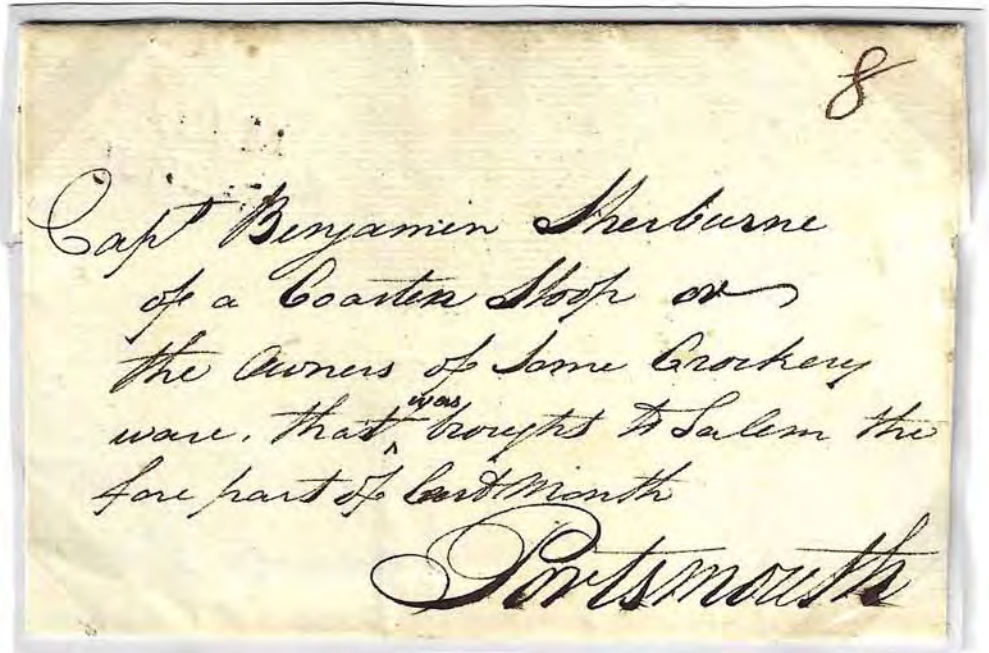 8
Capt Benjamin Sherburne
of a Coasten Sloop or
the Owners of Some Crockery
ware, that was brought to Salem the
fore part of last Month
Portsmouth